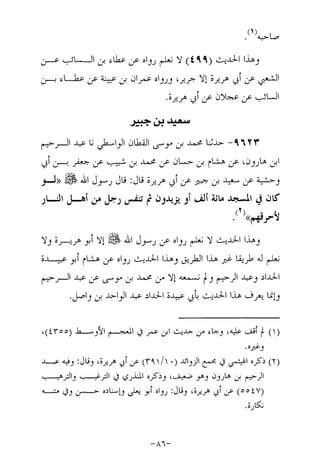 صاحبه(١).
وهذا الحديث (٤٩٩) لا نعلم رواه عن عطاء بن الـسـائب عـن
الشعبي عن أبي هريرة إلا جرير، ورواه عمران بن عيينة عن عطـاء بـن
السائب عن عجلان عن أبي هريرة.
سعيد بن جبير
٩٦٢٣- حدثنا محمد بن موسى القطان الواسطي نا عبد الـرحيم
ابن هارون، عن هشام بن حسان عن محمد بن شبيب عن جعفر بـن أبي
وحشية عن سعيد بن جبير عن أبي هريرة قال: قال رسول الله ﷺ «لـو
كان في المسجد مائة ألف أو يزيدون ثم تنفس رجل من أهـل النـار
لأحرقهم»(٢).
وهذا الحديث لا نعلم رواه عن رسول الله ﷺ إلا أبو هريـرة ولا
نعلم له طريقا غير هذا الطريق وهذا الحديث رواه عن هشام أبو عبيـدة
الحداد وعبد الرحيم ولم نسمعه إلا من محمد بن موسى عن عبد الـرحيم
وإنما يعرف هذا الحديث بأبي عبيدة الحداد عبد الواحد بن واصل.
(١) لم أقف عليه، وجاء من حديث ابن عمر في المعجـم الأوسـط (٤٣٥٥)،
وغيره.
(٢) ذكره الهيثمي في مجمع الزوائد (٣٩١/١٠) عن أبي هريرة، وقال: وفيه عبـد
الرحيم بن هارون وهو ضعيف، وذكره المنذري في الترغيـب والترهيـب
(٥٥٤٧) عن أبي هريرة، وقال: رواه أبو يعلى وإسناده حـسن وفي متنـه
نكارة.
-٨٦-